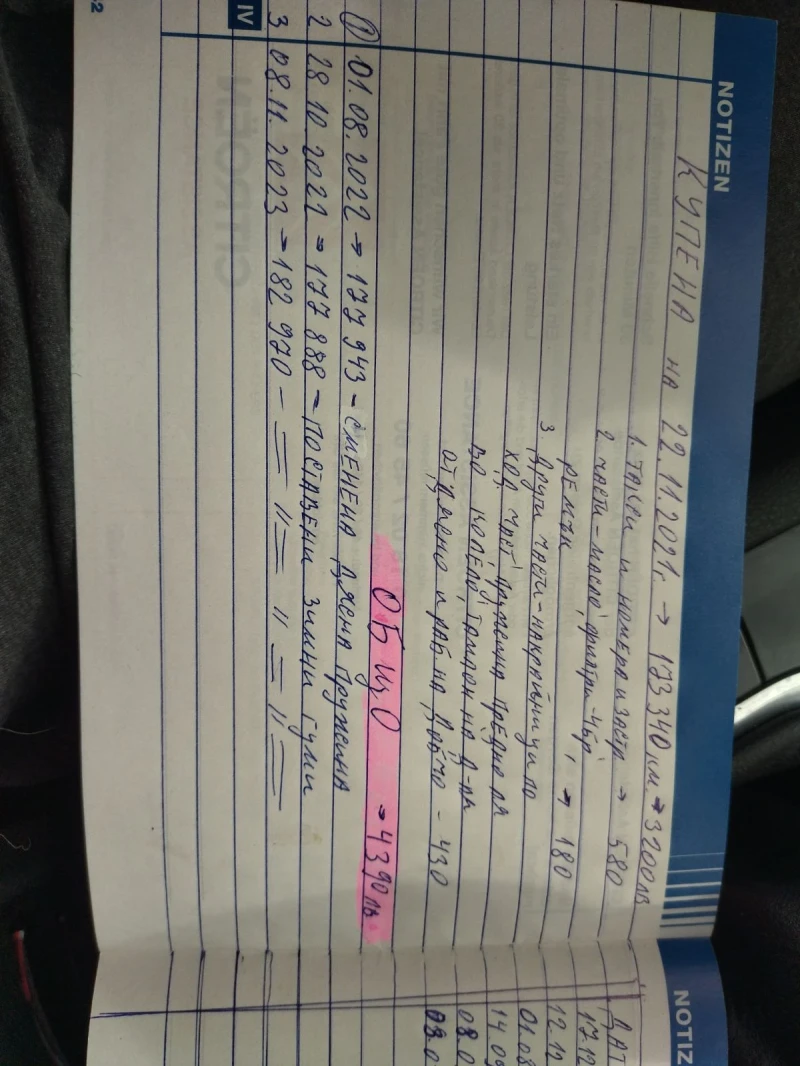 NOTIZEN
КУПЕНА НА 22.11.2021г. → 173340 км. → 3200лв
1. ТАКСИ И НОМЕРА И ЗАСТР → 580
2. ЧАСТИ - МАСЛО, ФИЛТРИ - 4бр,
РЕМЪЦИ, → 180
3. ДРУГИ ЧАСТИ - НАКРАЙНИЦИ ПО
ХОД. ЧАСТ, ПРУЖИНА ПРЕДНО ЛЯ
ВО КОЛЕЛО, ТАМПОН НА Д-ЛЯ
ОТ ДЯСНО И РАБ. НА - 430
ОБЩО → 4390 лв.
① 01.08.2022 → 177 943 - СМЕНЕНА ДЯСНА ПРУЖИНА
2 28.10.2022 → 177 888 - ПОСТАВЕНИ ЗИМНИ ГУМИ
3 08.11.2023 → 182 970 - = " = " = " =
IV
CITROËN
NOTIZ
ДАТ
17.12
12.12
01.08
14.09
08.0
03.0